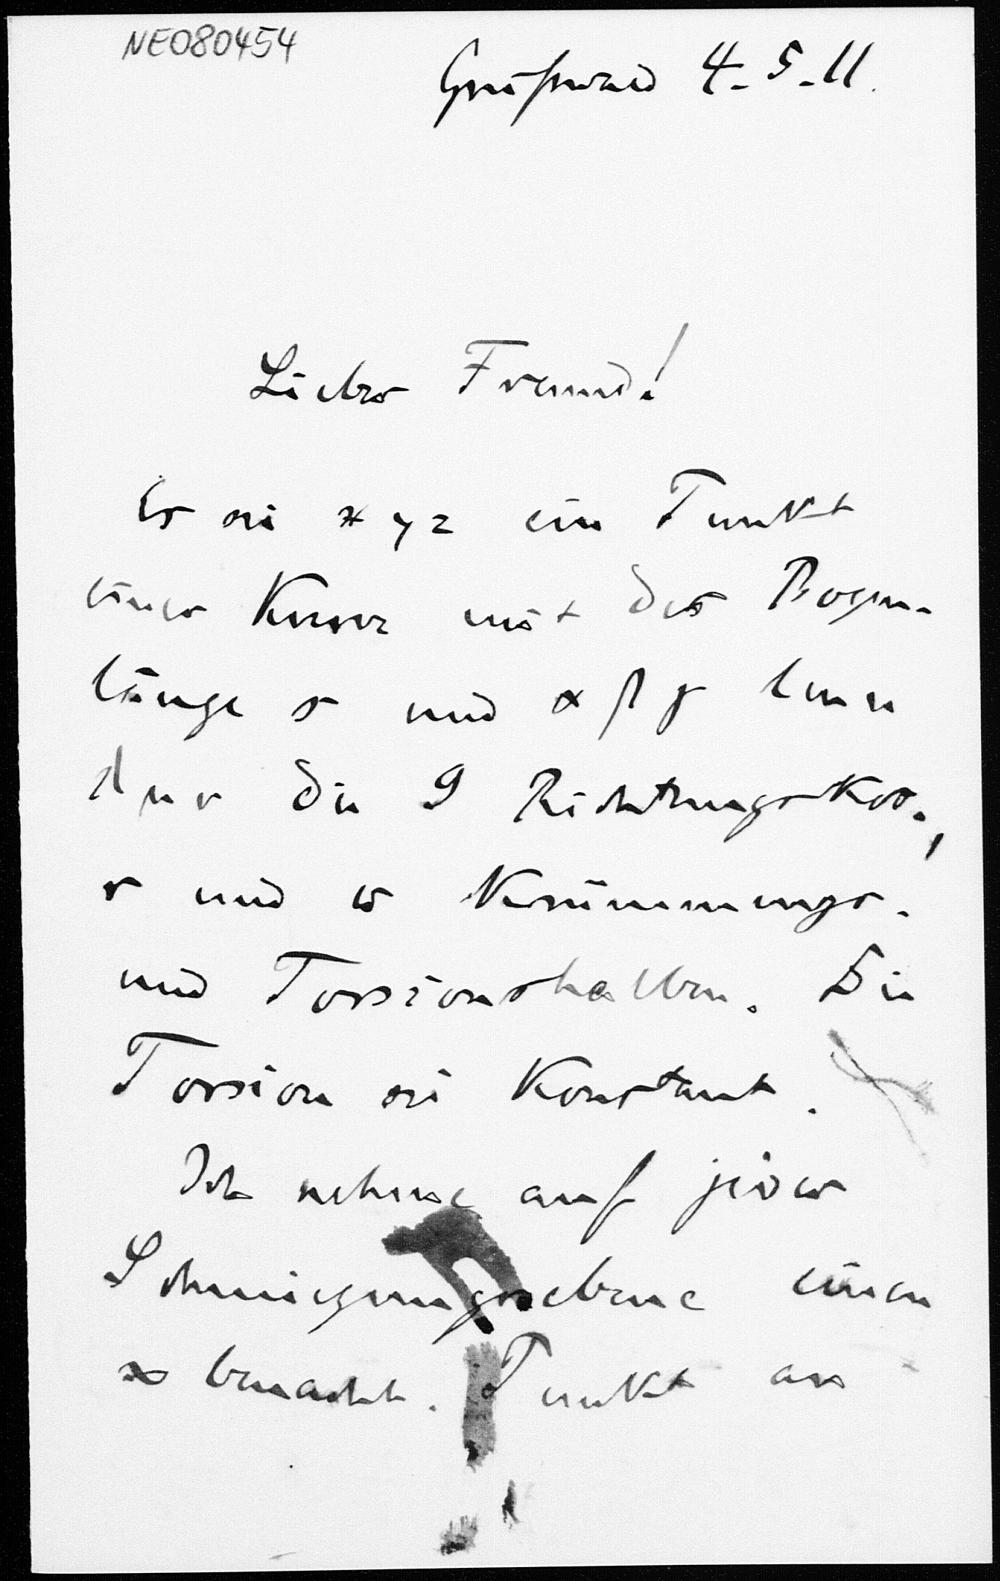 NE080454
Greifswald 4.5.11.
Lieber Freund!
Es sei x y z ein Punkt
einer Kurve mit der Bogen-
länge s und α β γ l m n
λ μ ν die 9 Richtungskos.,
r und Krümmungs-
und Torsionshalbm. Die
Torsion sei konstant.
Ich nehme auf jeder
Schmiegungsebene einen
∞ benachb. Punkt an